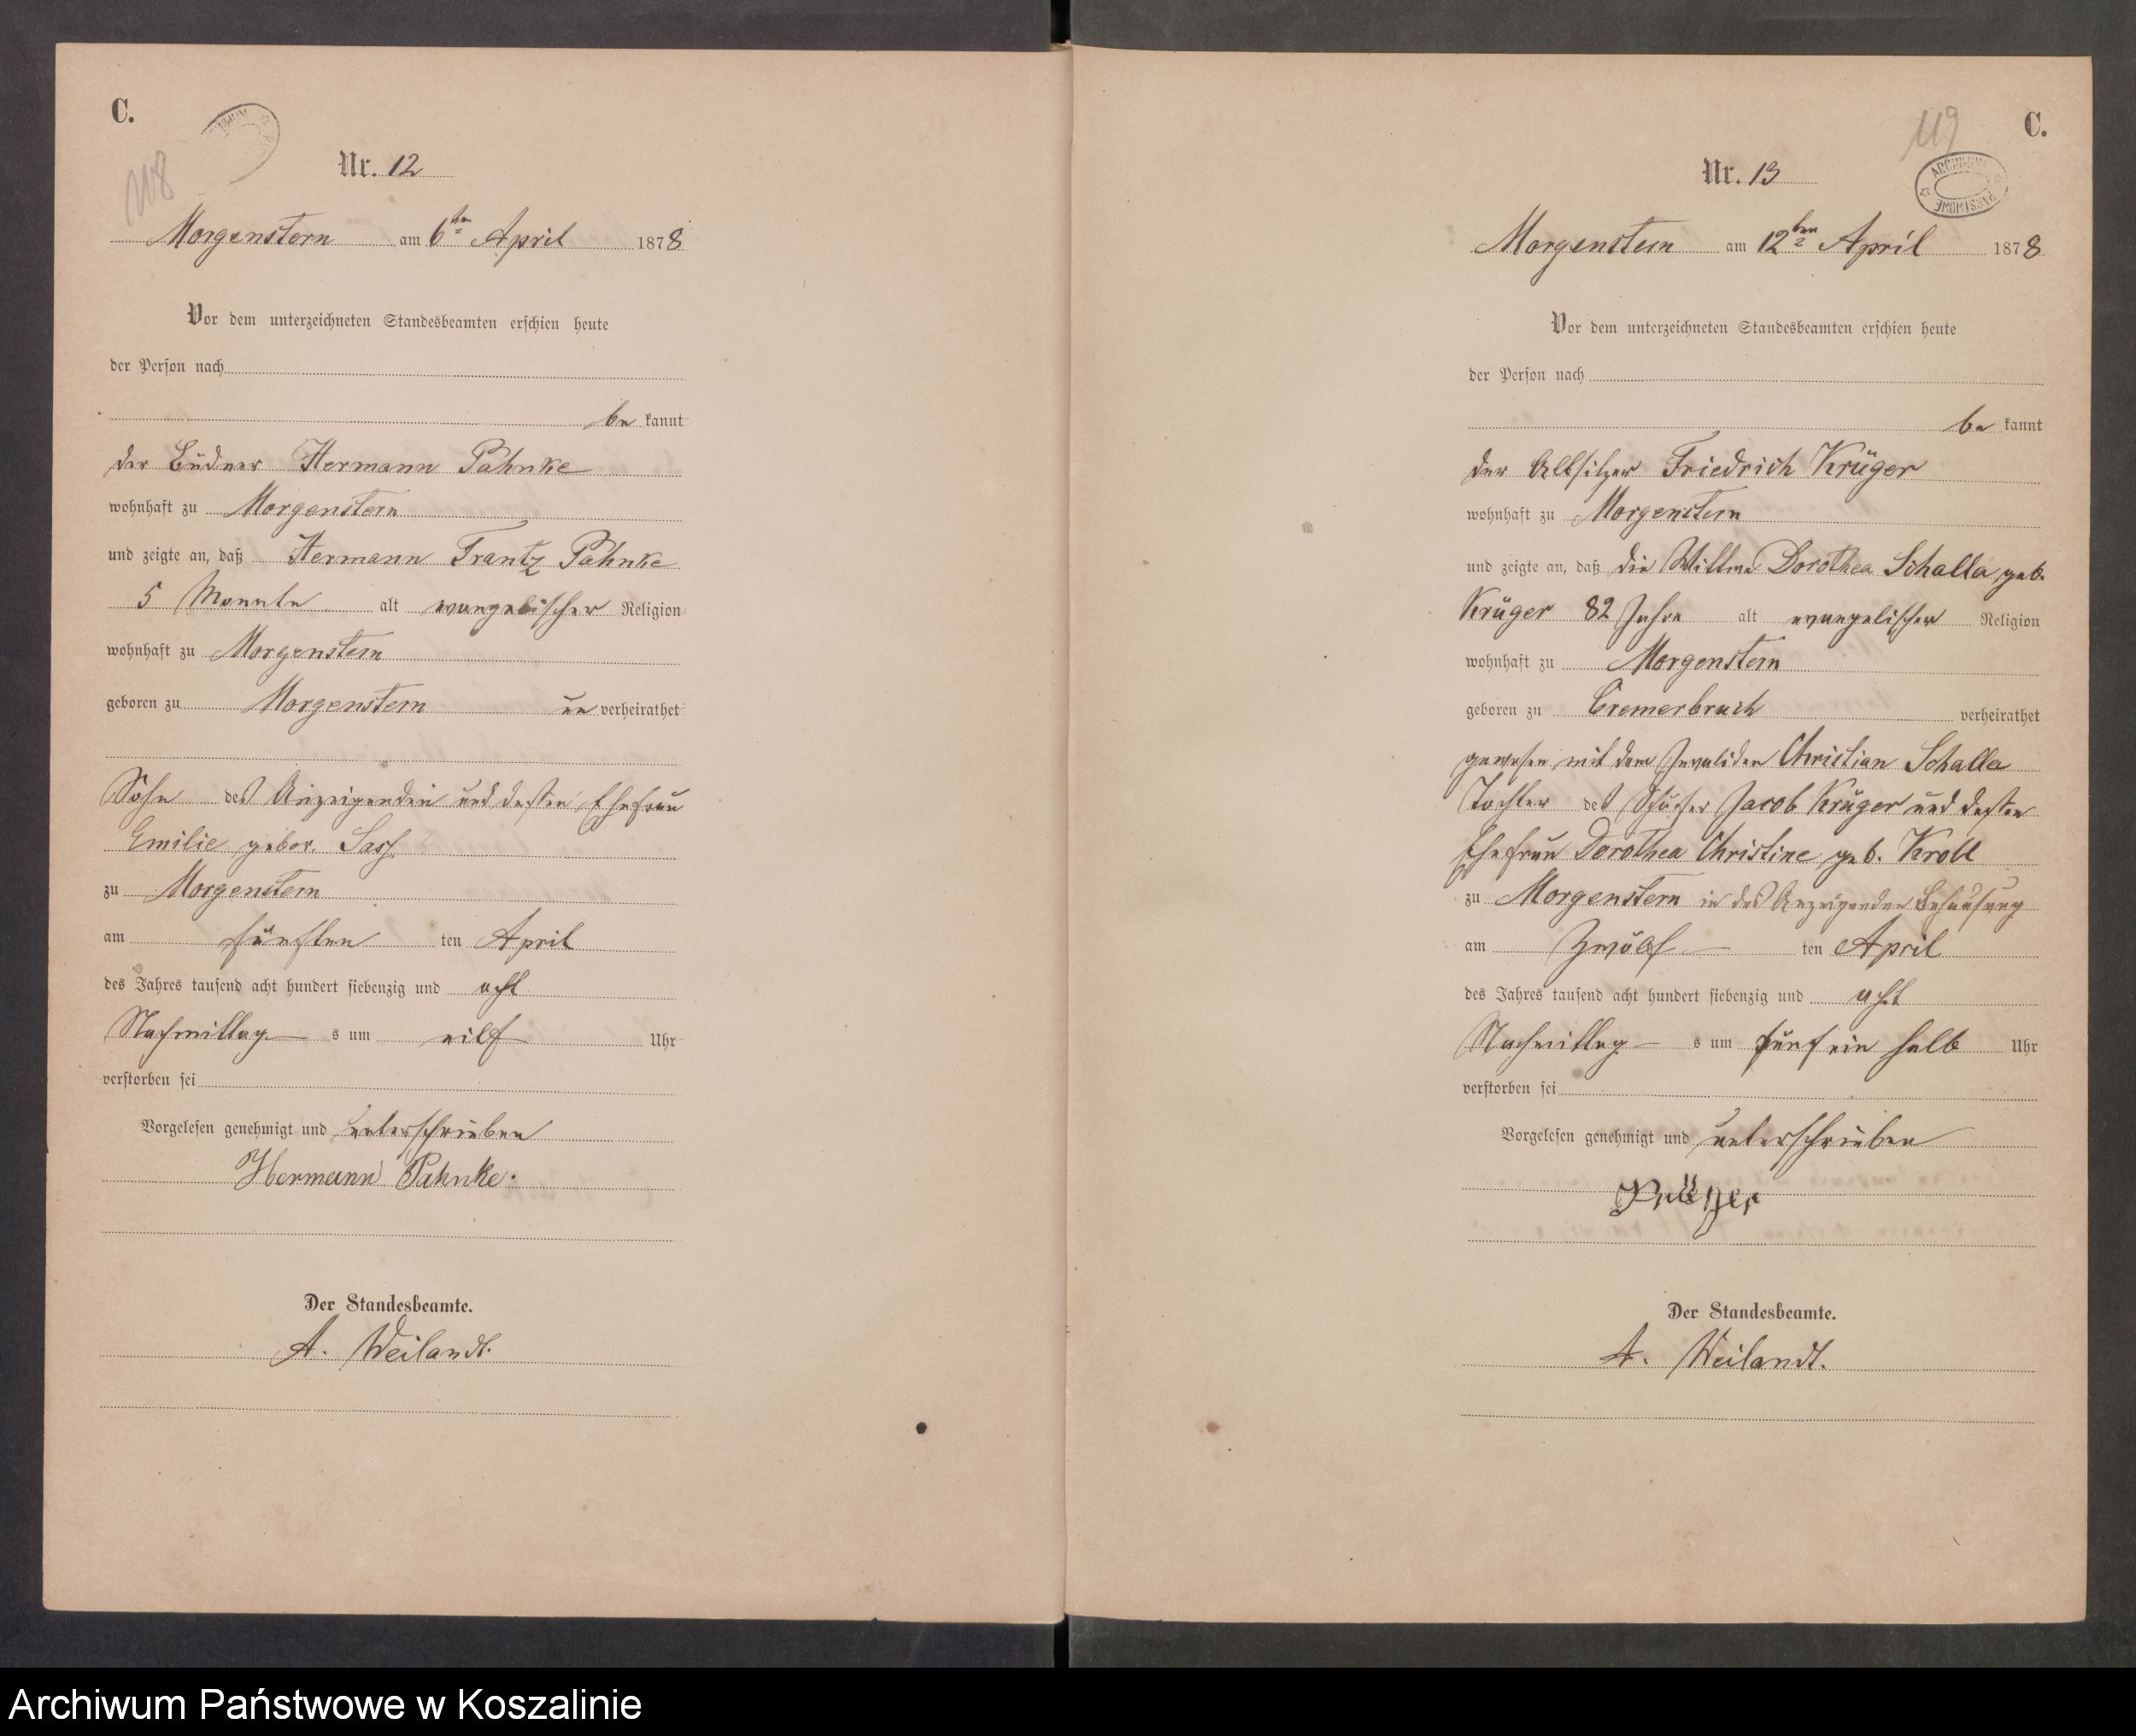 C.
118
Nr. 12
Morgenstern am 6ten April 1878
Vor dem unterzeichneten Standesbeamten erschien heute
der Person nach
be kannt
der Büdner Hermann Pahnke
wohnhaft zu Morgenstern
und zeigte an, daß Hermann Frantz Pahnke
5 Monate alt evangelischer Religion
wohnhaft zu Morgenstern
geboren zu Morgenstern un verheirathet
Sohn des Anzeigenden und dessen Ehefrau
Emilie gebor. Sass
zu Morgenstern
am fünften ten April
des Jahres tausend acht hundert siebenzig und acht
Nachmittag s um eilf Uhr
verstorben sei
Vorgelesen genehmigt und unterschrieben
Hermann Pahnke.
Der Standesbeamte.
A. Weilandt.
119
C.
ARCHIWUM
Nr. 13
Morgenstern am 12ten April 1878
Vor dem unterzeichneten Standesbeamten erschien heute
der Person nach
be kannt
der Altsitzer Friedrich Krüger
wohnhaft zu Morgenstern
und zeigte an, daß die Wittwe Dorothea Schalla geb.
Krüger 82 Jahre alt evangelischer Religion
wohnhaft zu Morgenstern
geboren zu Cremerbruch verheirathet
gewesen mit dem Invaliden Christian Schalla
Tochter des Jacob Krüger und dessen
Ehefrau Dorothea Christine geb. Kroll
zu Morgenstern in des Anzeigenden Behausung
am Zwölf ten April
des Jahres tausend acht hundert siebenzig und acht
Nachmittag s um fünf ein halb Uhr
verstorben sei
Vorgelesen genehmigt und unterschrieben
Krüger
Der Standesbeamte.
A. Weilandt.
Archiwum Państwowe w Koszalinie